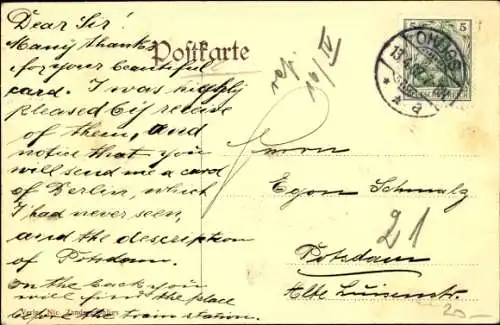 Dear Sir!
Many thanks
for your beautiful
card. I was highly
pleased by receive
of them, and
notice that you
will send me a card
of Berlin, which
I had never seen,
and the description
of Potsdam.
On the back you
will find the place
before the train station.
Postkarte
16/IV
5 5
13.4.
* a
Herrn
Egon Schmalz
21
Potsdam
Alte Luisenstr.
20-
Verlag Nic. Zander